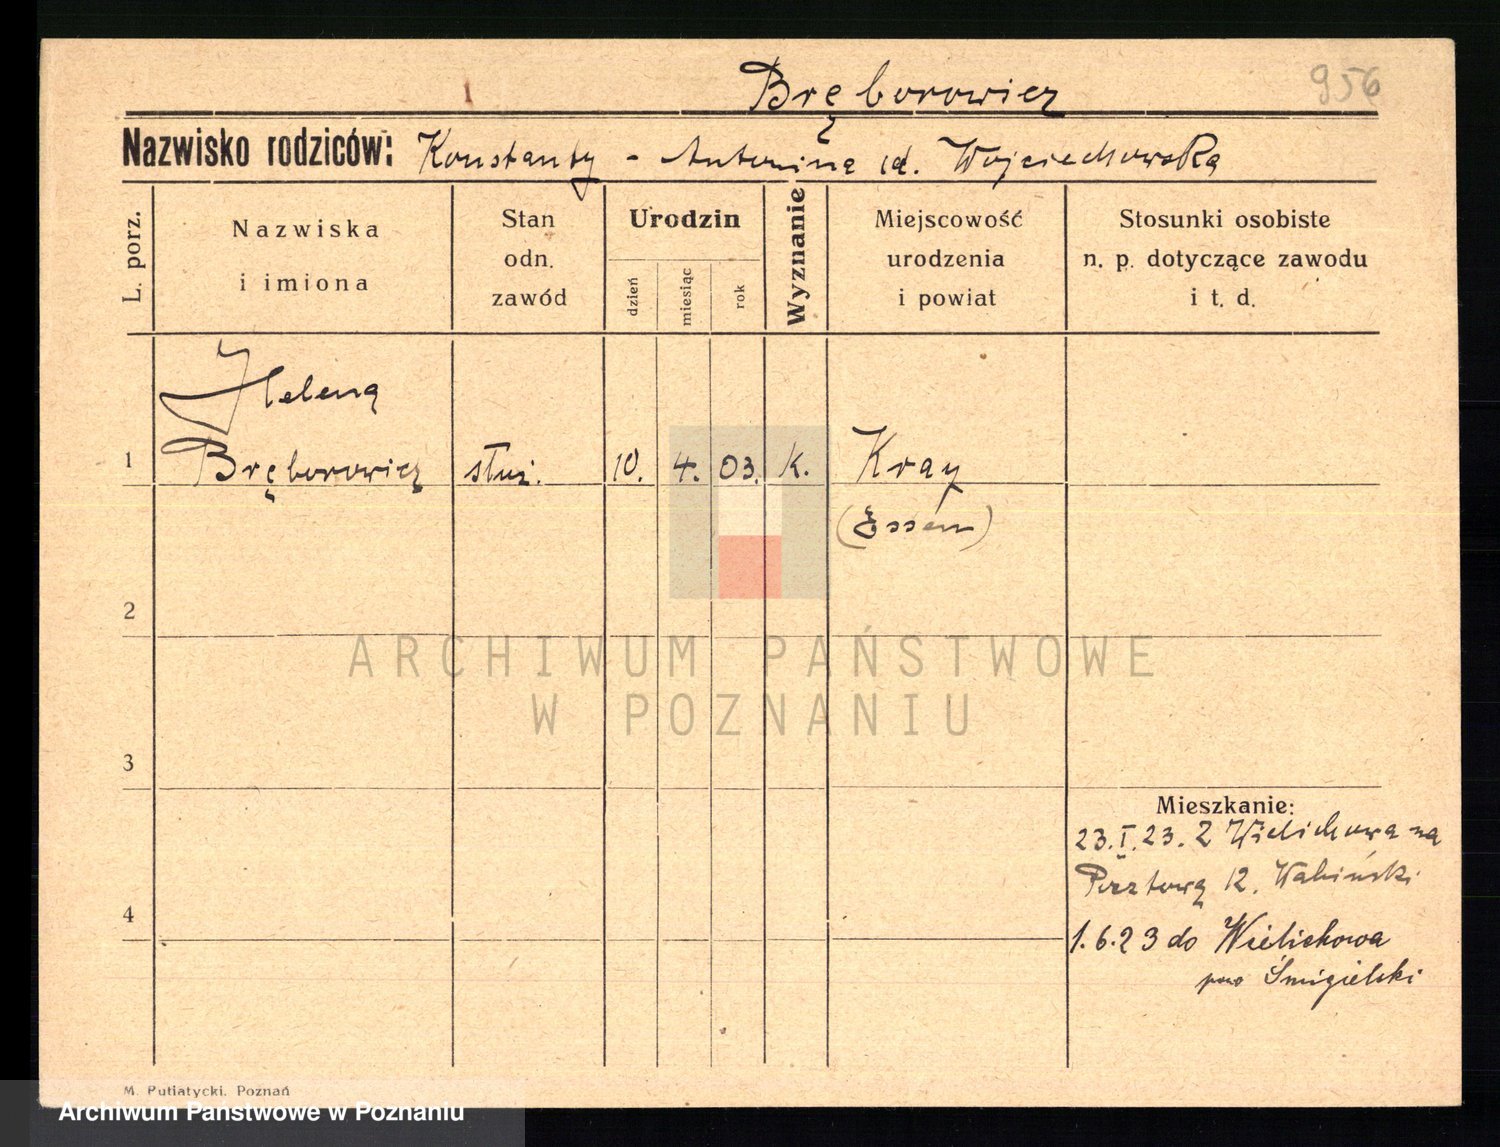 Bręborowicz
956
Nazwisko rodziców: Konstanty - Antonina id. Wojciechowska
L. porz.
Nazwiska
i imiona
Stan
odn.
zawód
Urodzin
dzień
miesiąc
rok
Wyznanie
Miejscowość
urodzenia
i powiat
Stosunki osobiste
n. p. dotyczące zawodu
i t. d.
Helena
1 Bręborowicz służ. 10. 4. 03. k. Kray
(Essen)
2
ARCHIWUM PAŃSTWOWE
W POZNANIU
3
Mieszkanie:
23.I.23. Z Wielichowa na
Pocztową 12. Wabiński
4
1.6.23 do Wielichowa
pow Śmigielski
M. Putiatycki. Poznań
Archiwum Państwowe w Poznaniu